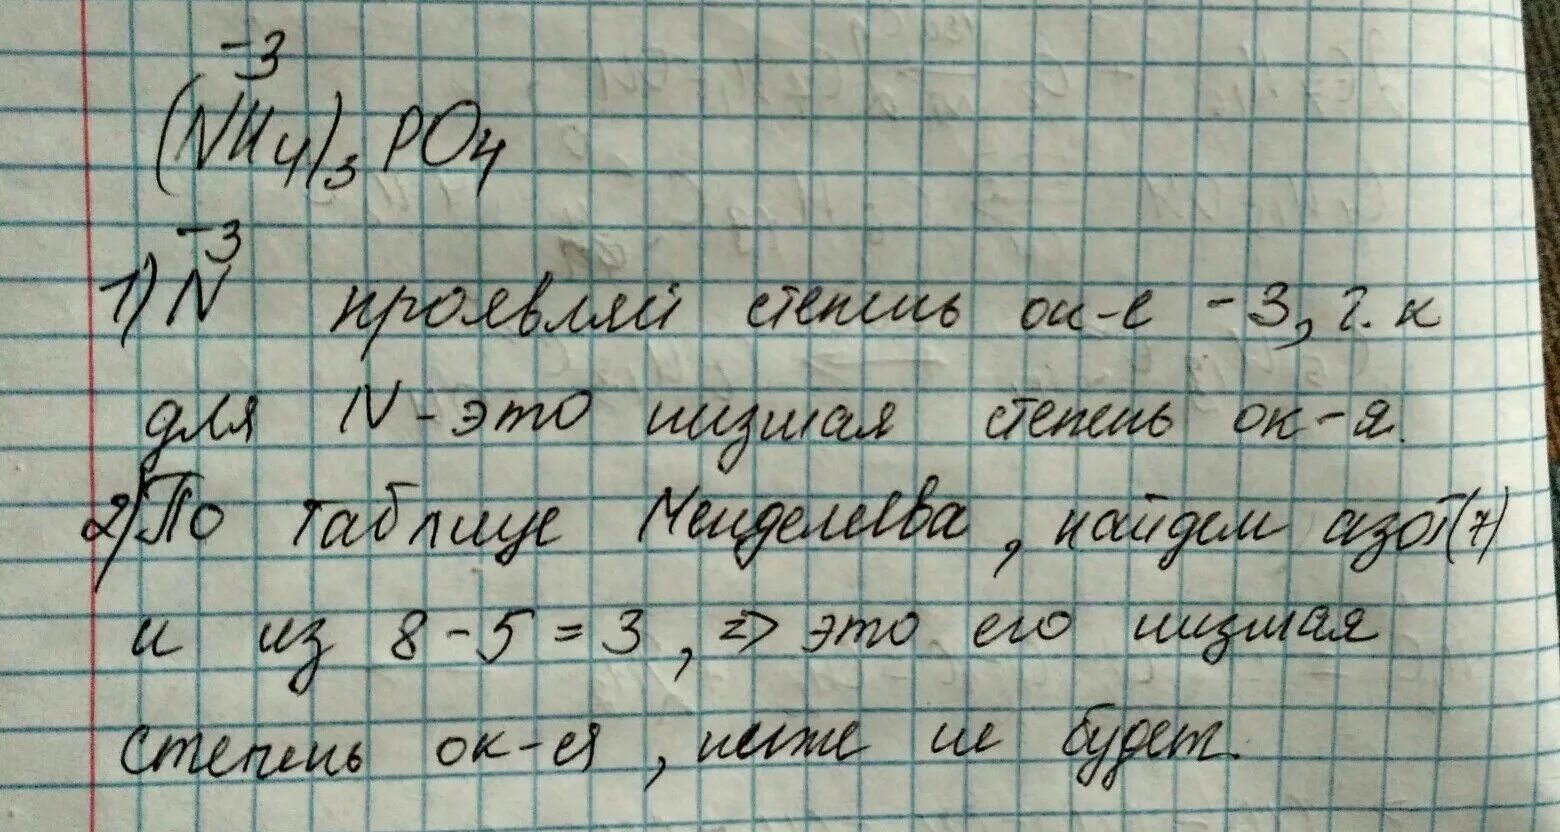 -3
(NH4)3 PO4
-3
1) N проявляй степень ок-е -3, т.к
для N - это низшая степень ок-я.
2) По таблице Менделеева, найдем азот(7)
и из 8-5=3, => это его низшая
степень ок-ея, ниже не будет.